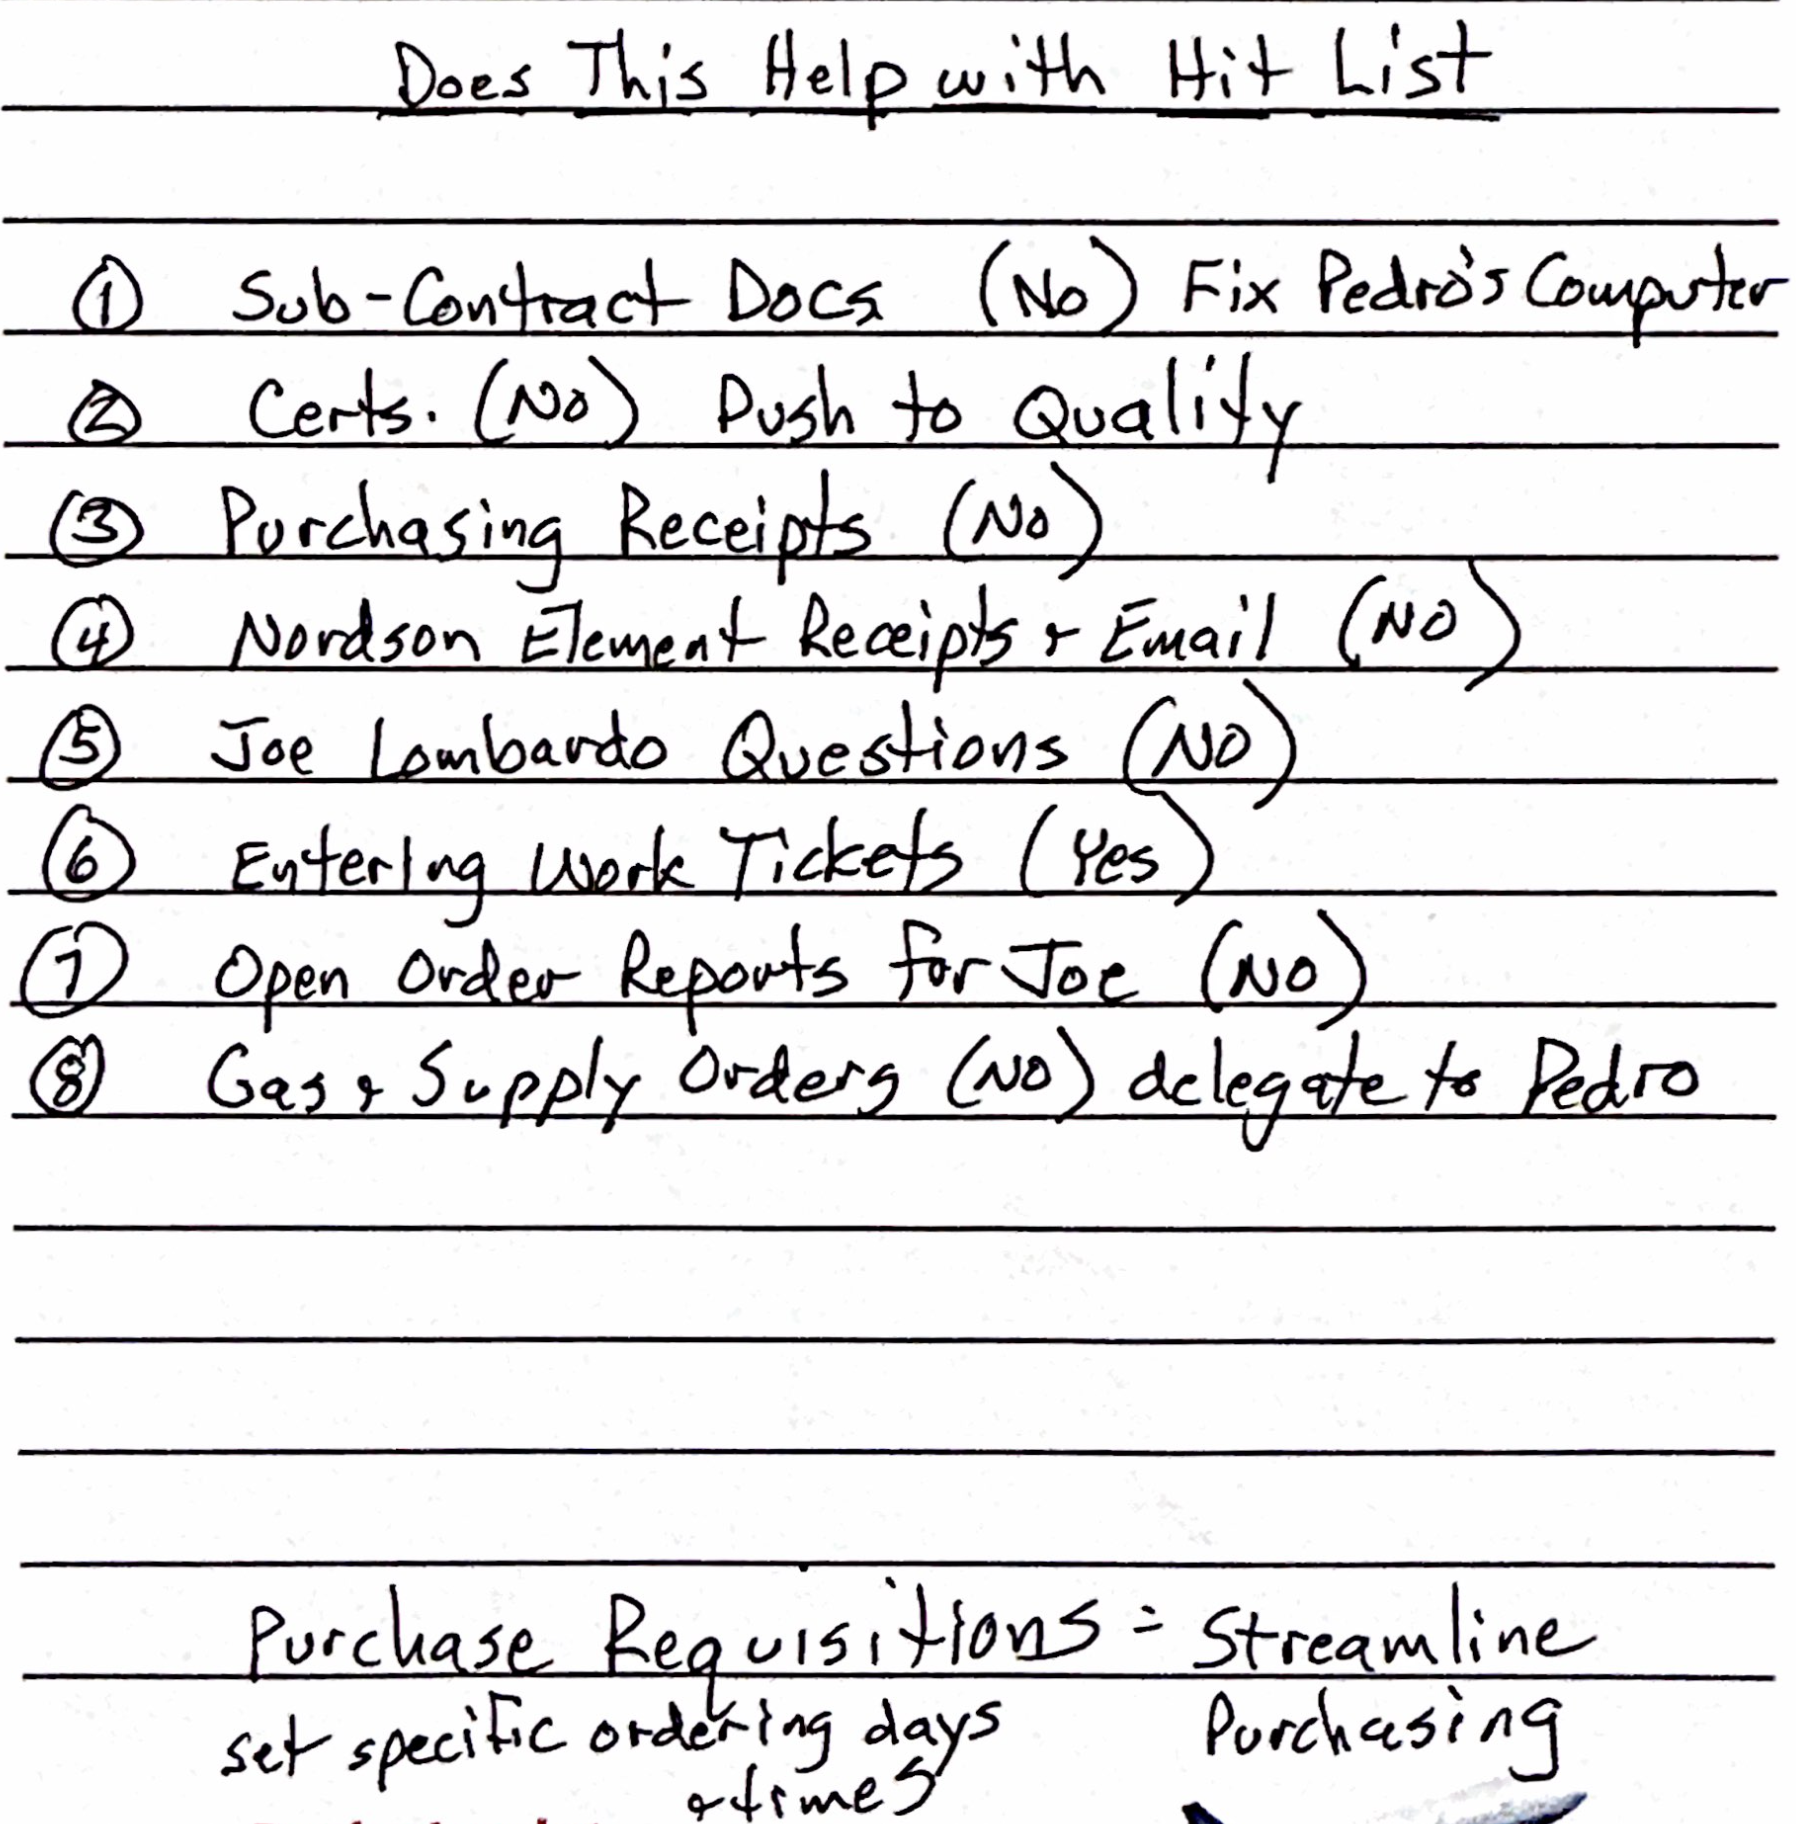 Does This Help with Hit List
① Sub-Contract Docs (No) Fix Pedro's Computer
② Certs. (No) Push to Quality
③ Purchasing Receipts (No)
④ Nordson Element Receipts & Email (NO)
⑤ Joe Lombardo Questions (NO)
⑥ Entering Work Tickets (Yes)
⑦ Open Order Reports for Joe (NO)
⑧ Gas & Supply Orders (NO) delegate to Pedro
Purchase Requisitions = Streamline
set specific ordering days Purchasing
& times